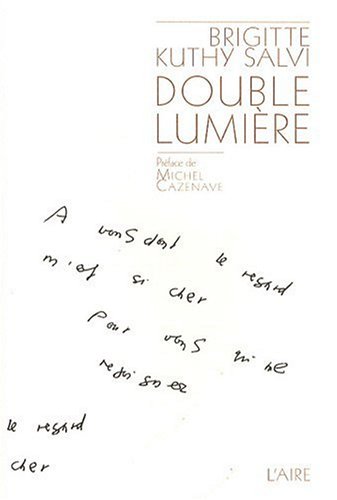 BRIGITTE
KUTHY SALVI
DOUBLE
LUMIÈRE
Préface de
MICHEL
CAZENAVE
A vous dont le regard
m'est si cher
pour vous
le regard
cher
L'AIRE